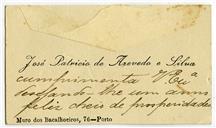 José Patricio de Azevedo e Silva
cumprimenta V. Exª
desejando-lhe um anno
feliz cheio de prosperidades
Muro dos Bacalhoeiros, 76—Porto